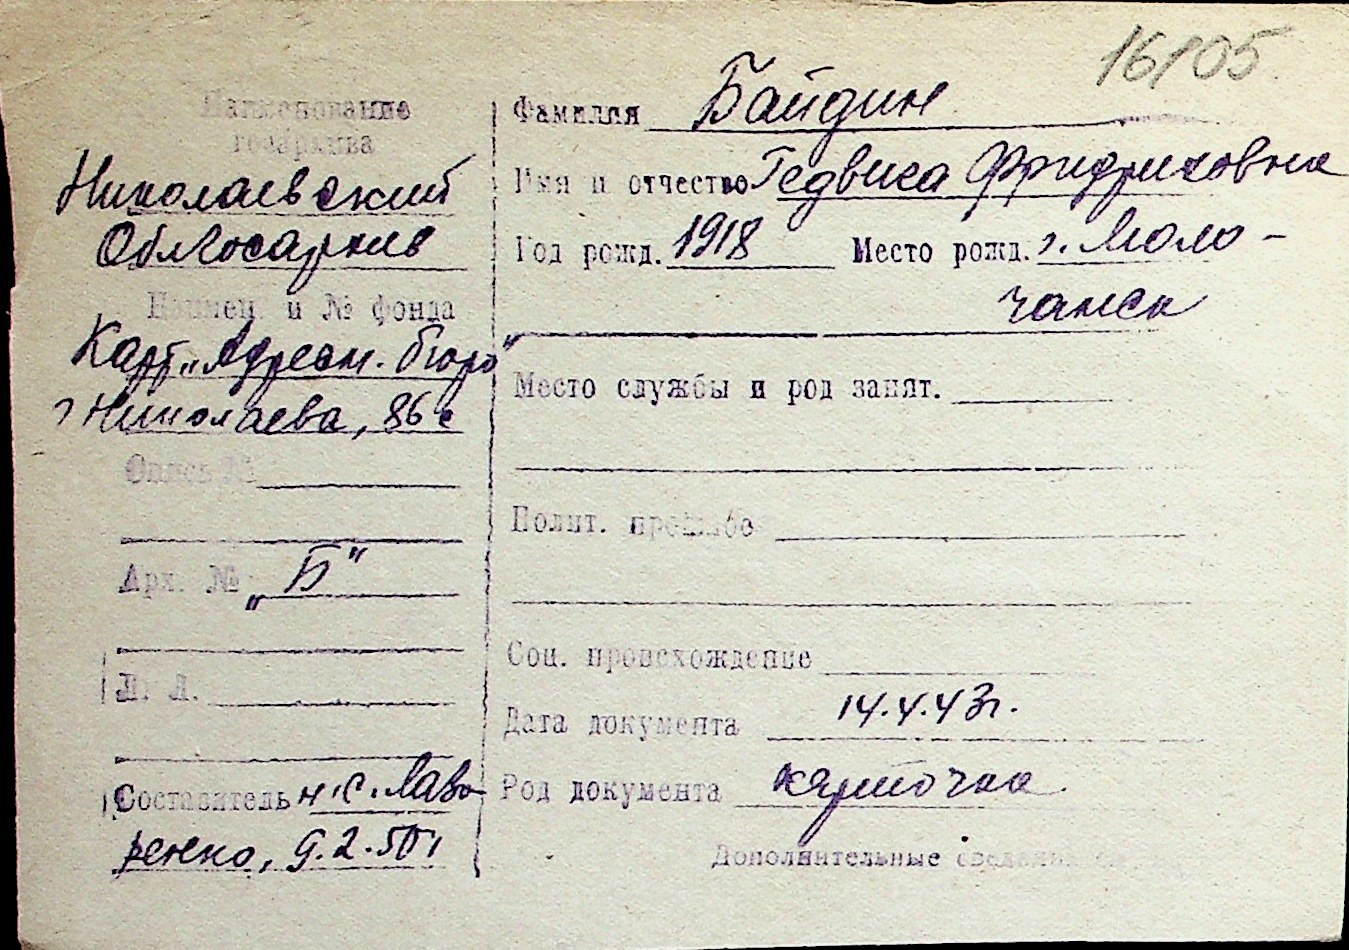 16105
Наименование
госархива
Николаевский
Облгосархив
Наимен. и № фонда
Карт. „Адресн. бюро"
г. Николаева, 86 с
Опись №
Арх. № „Б"
Л. Л.
Составитель н.с. Лаво-
ренко, 9.2.50 г
Фамилия Байдин
Имя и отчество Гедвига Фридриховна
Год рожд. 1918 Место рожд. г. Моло-
чанск
Место службы и род занят.
Полит. прошлое
Соц. происхождение
Дата документа 14.4.43 г.
Род документа карточка
Дополнительные сведения